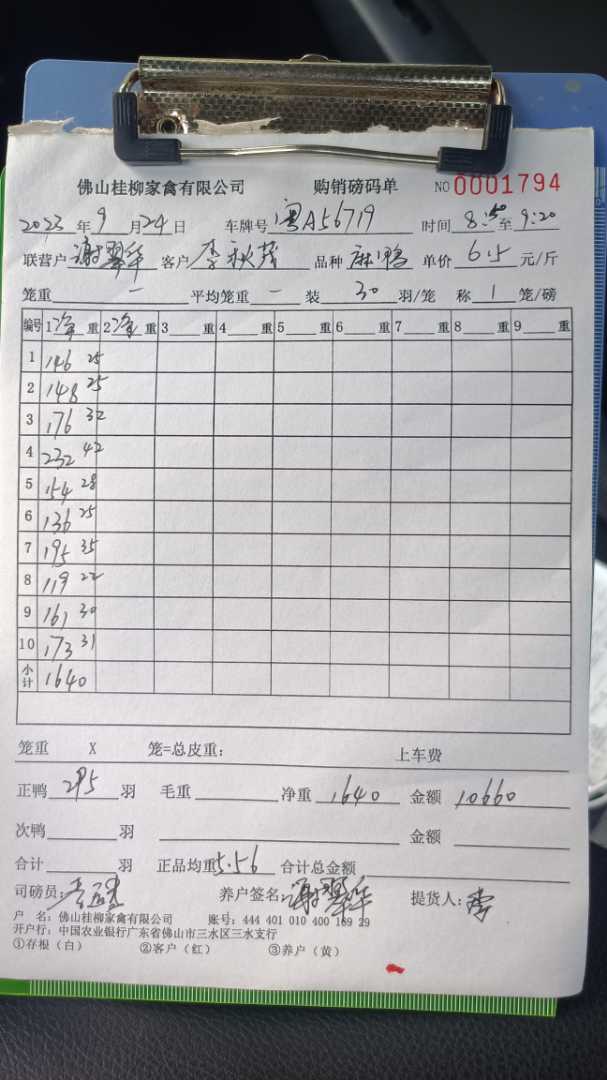 佛山桂柳家禽有限公司 购销磅码单 NO 0001794
2023年9月24日 车牌号 粤A56719 时间 8:50至9:20
联营户 谢翠华 客户 李秋茂 品种 麻鸭 单价 6.5 元/斤
笼重 一 平均笼重 一 装 30 羽/笼 称 1 笼/磅
编号 1 净 重 2 净 重 3 重 4 重 5 重 6 重 7 重 8 重 9 重
1 146 25
2 148 25
3 176 32
4 232 42
5 154 28
6 136 25
7 195 35
8 119 22
9 161 30
10 173 31
小计 1640
笼重 X 笼=总皮重: 上车费
正鸭 295 羽 毛重 净重 1640 金额 10660
次鸭 羽 金额
合计 羽 正品均重 5.56 合计总金额
司磅员: 养户签名: 谢翠华 提货人: 李
户 名: 佛山桂柳家禽有限公司 账号: 444 401 010 400 169 29
开户行: 中国农业银行广东省佛山市三水区三水支行
①存根（白） ②客户（红） ③养户（黄）